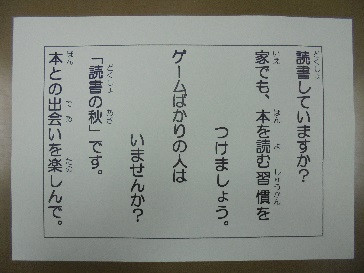 読書していますか？
家でも、本を読む習慣を
つけましょう。
ゲームばかりの人は
いませんか？
「読書の秋」です。
本との出会いを楽しんで。